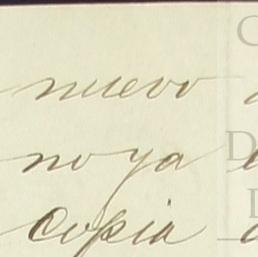 nuevo
no ya
copia